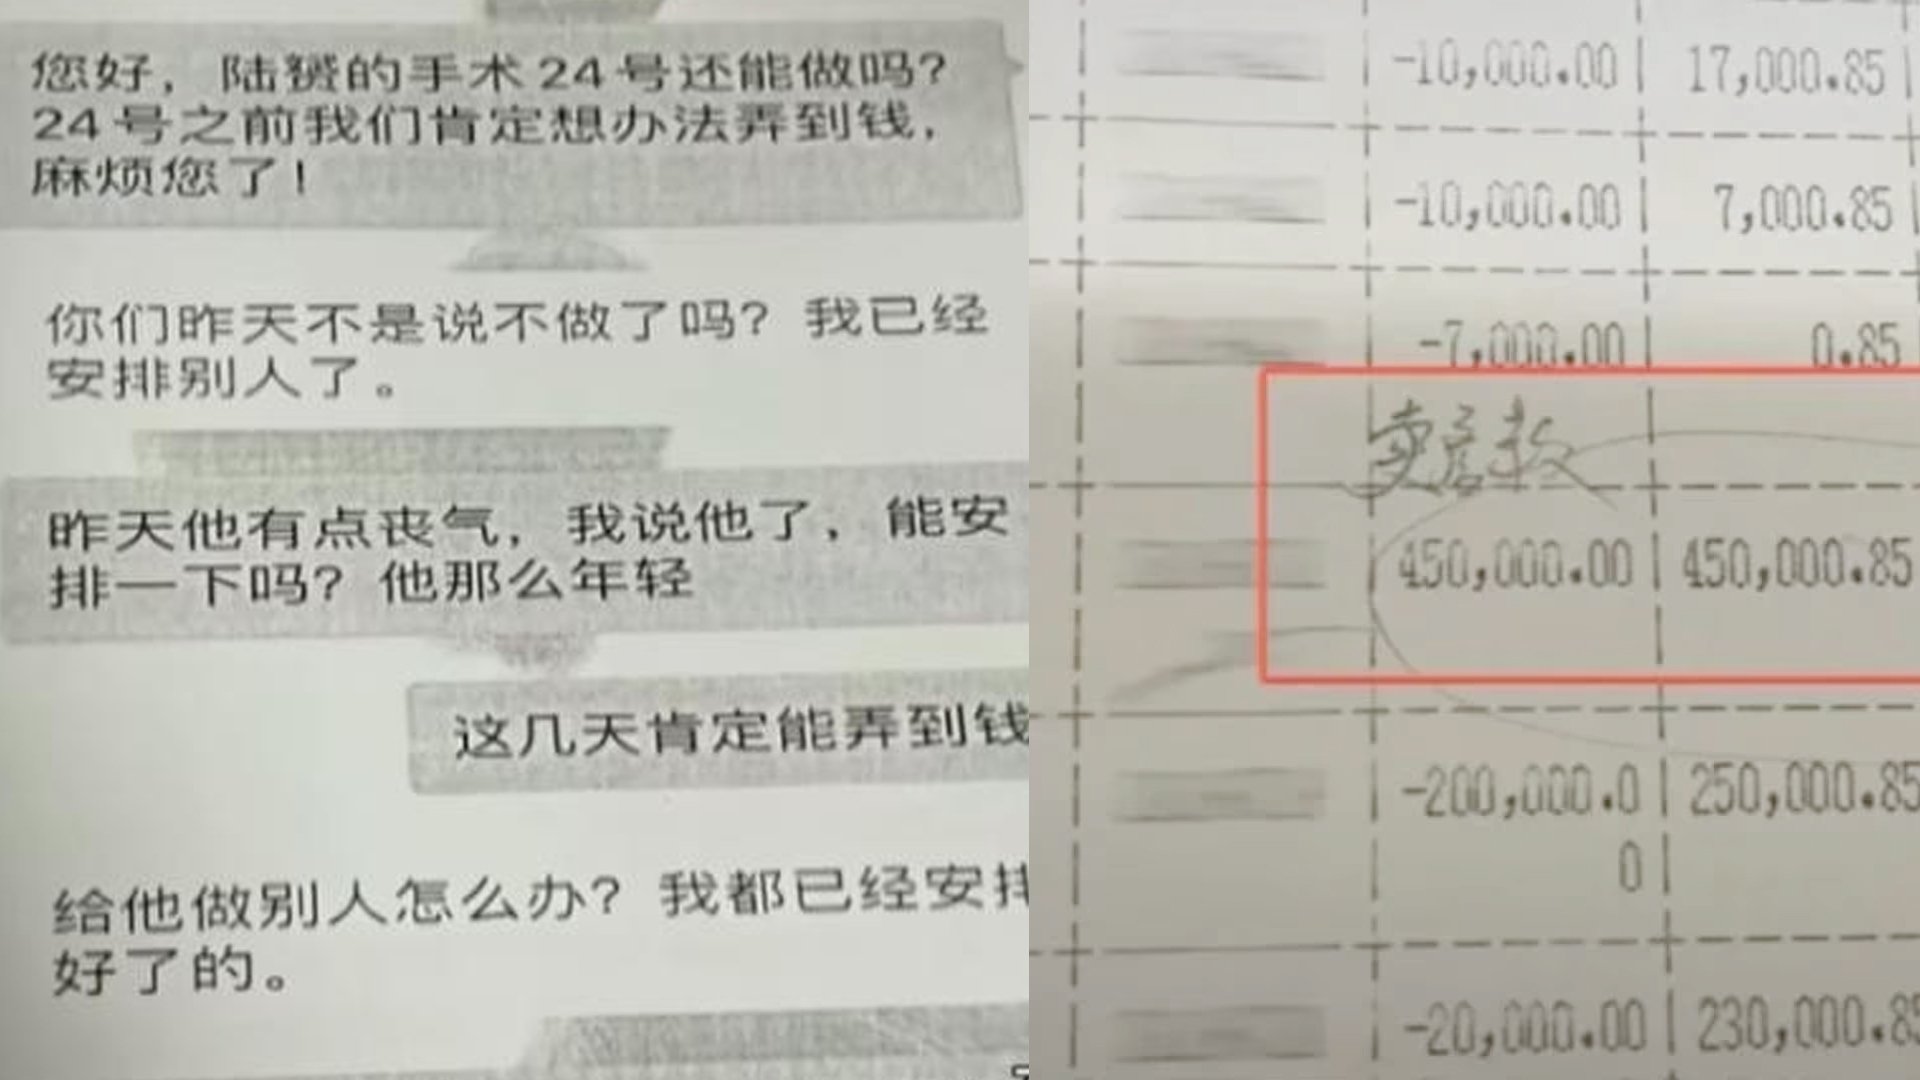 您好，陆赟的手术24号还能做吗？
24号之前我们肯定想办法弄到钱，
麻烦您了！
你们昨天不是说不做了吗？我已经
安排别人了。
昨天他有点丧气，我说他了，能安
排一下吗？他那么年轻
这几天肯定能弄到钱
给他做别人怎么办？我都已经安排
好了的。
-10,000.00 17,000.85
-10,000.00 7,000.85
-7,000.00 0.85
卖房款
450,000.00 450,000.85
-200,000.0 250,000.85
0
-20,000.00 230,000.85